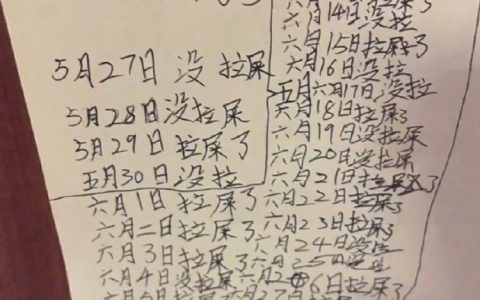 5月27日 没 拉屎
5月28日没拉屎
5月29日 拉屎了
五月30日 没 拉
六月1日 拉屎了
六月二日 拉屎了
六月3日 拉屎了
六月4日没拉屎
六月14日没拉
六月15日拉屎了
六月16日没拉
五月六月17日没拉
六月18日拉屎了
六月19日没拉屎
六月20日没拉屎
六月21日拉屎了
六月22日拉屎了
六月23日拉屎了
六月24日没
六月25日没
六月26日拉屎了